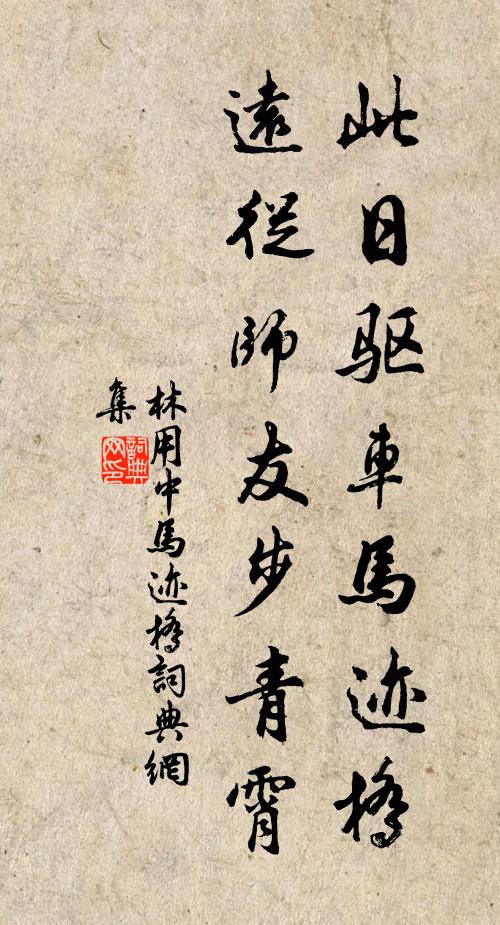 此日驱車馬迹橋
遠從師友步青霄
林用中馬迹橋詞典網
集
詞典
网印